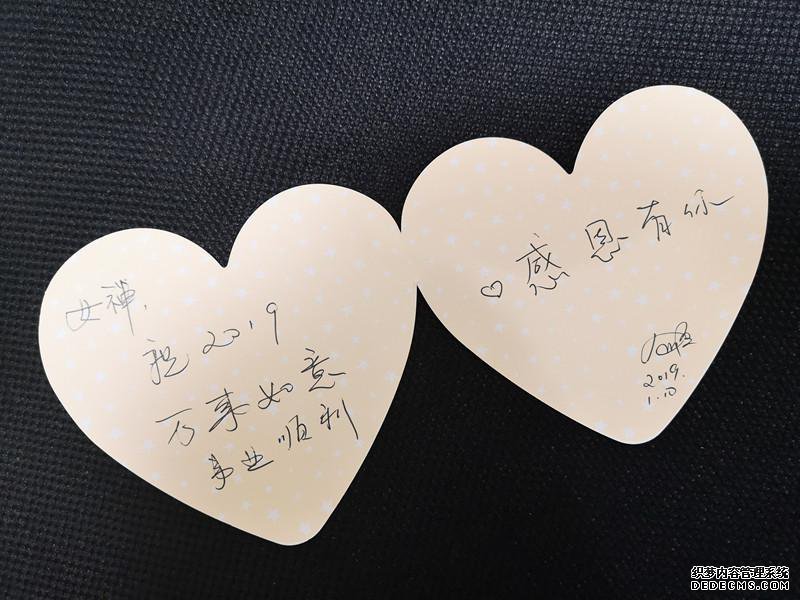 女禅，
祝2019
万事如意
事业顺利
♡感恩有你
2019.
1.10
织梦内容管理系统
DEDECMS.COM